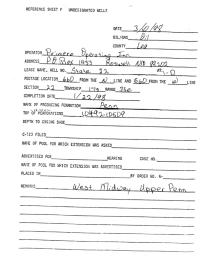 REFERENCE SHEET F UNDESIGNATED WELLS
DATE 3/6/98
OIL/GAS Oil
COUNTY Lea
OPERATOR Primero Operating Inc
ADDRESS PO Box 1433 Roswell NM 88202
LEASE NAME, WELL NO. State 22 #1-D
FOOTAGE LOCATION 660 FROM THE N LINE AND 660 FROM THE W LINE
SECTION 22 TOWNSHIP 17s RANGE 36e
COMPLETION DATE 1/22/98
NAME OF PRODUCING FORMATION Penn
TOP OF PERFORATIONS 10492-10509
DEPTH TO CASING SHOE
C-123 FILED
NAME OF POOL FOR WHICH EXTENSION WAS ASKED
ADVERTISED FOR HEARING CASE NO.
NAME OF POOL FOR WHICH EXTENSION WAS ADVERTISED
PLACED IN BY ORDER NO. R-
REMARKS West Midway Upper Penn